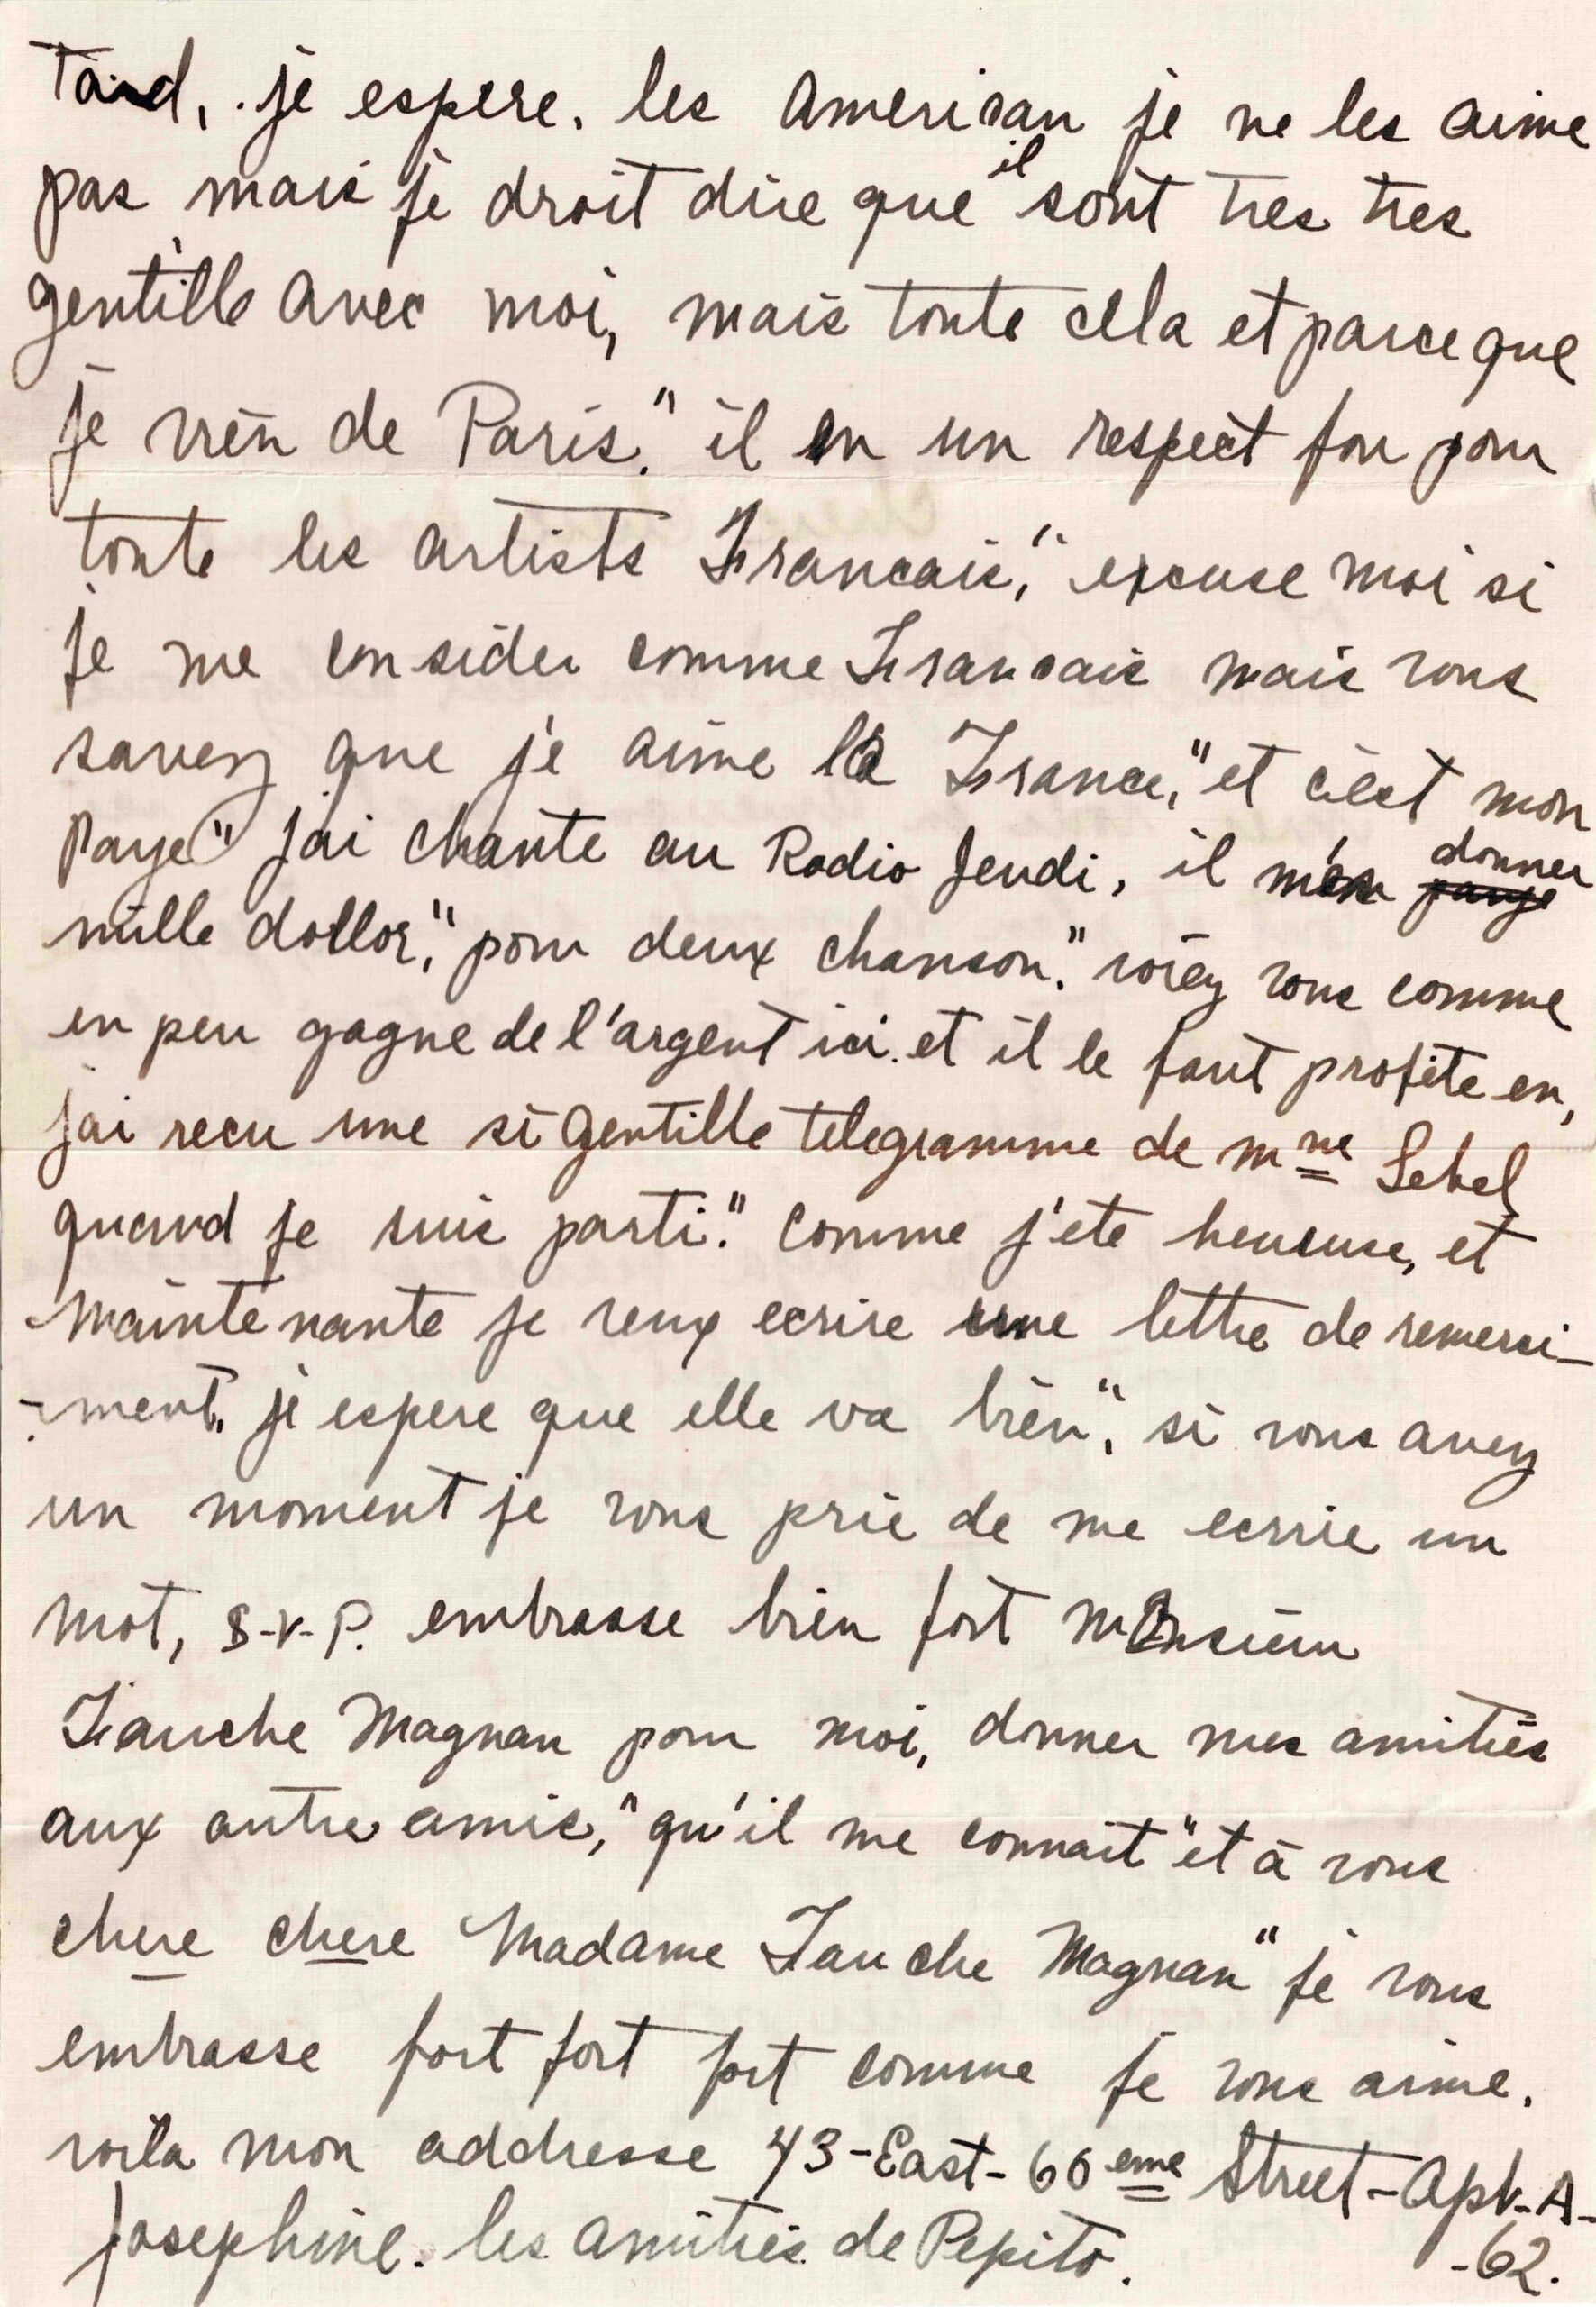 Tard, . je espere. les American je ne les aime
pas mais je droit dire que il sont tres tres
gentille avec moi, mais toute cela et parce que
je viēn de Paris." il en un respect fou pour
toute les artists Francais," excuse moi si
je me consider comme Francais mais vous
savez que j'e aime la France," et c'est mon
paye" j'ai chante au Radio Jeudi, il m'en donner
mille dollor," pour deux chanson." voiez vous comme
en peu gagne de l'argent ici. et il le faut profite en,
j'ai recu une si gentille telegramme de mme Lebel
quand je suis parti." comme j'ete heureuse, et
mainte nante je veux ecrire une lettre de remerci-
-ment. je espere que elle va bien," si vous avez
un moment je vous prie de me ecrire un
mot, S-V-P. embrasse bien fort monsieur
Fauche Magnan pour moi, donner mes amitiés
aux autre amis," qu'il me connait "et à vous
chere chere Madame Fauche Magnan" je vous
embrasse fort fort fort comme je vous aime.
voila mon addresse 43-East-60eme Street-Apt-A-
-62.
Josephine. les amitiés de Pepito.